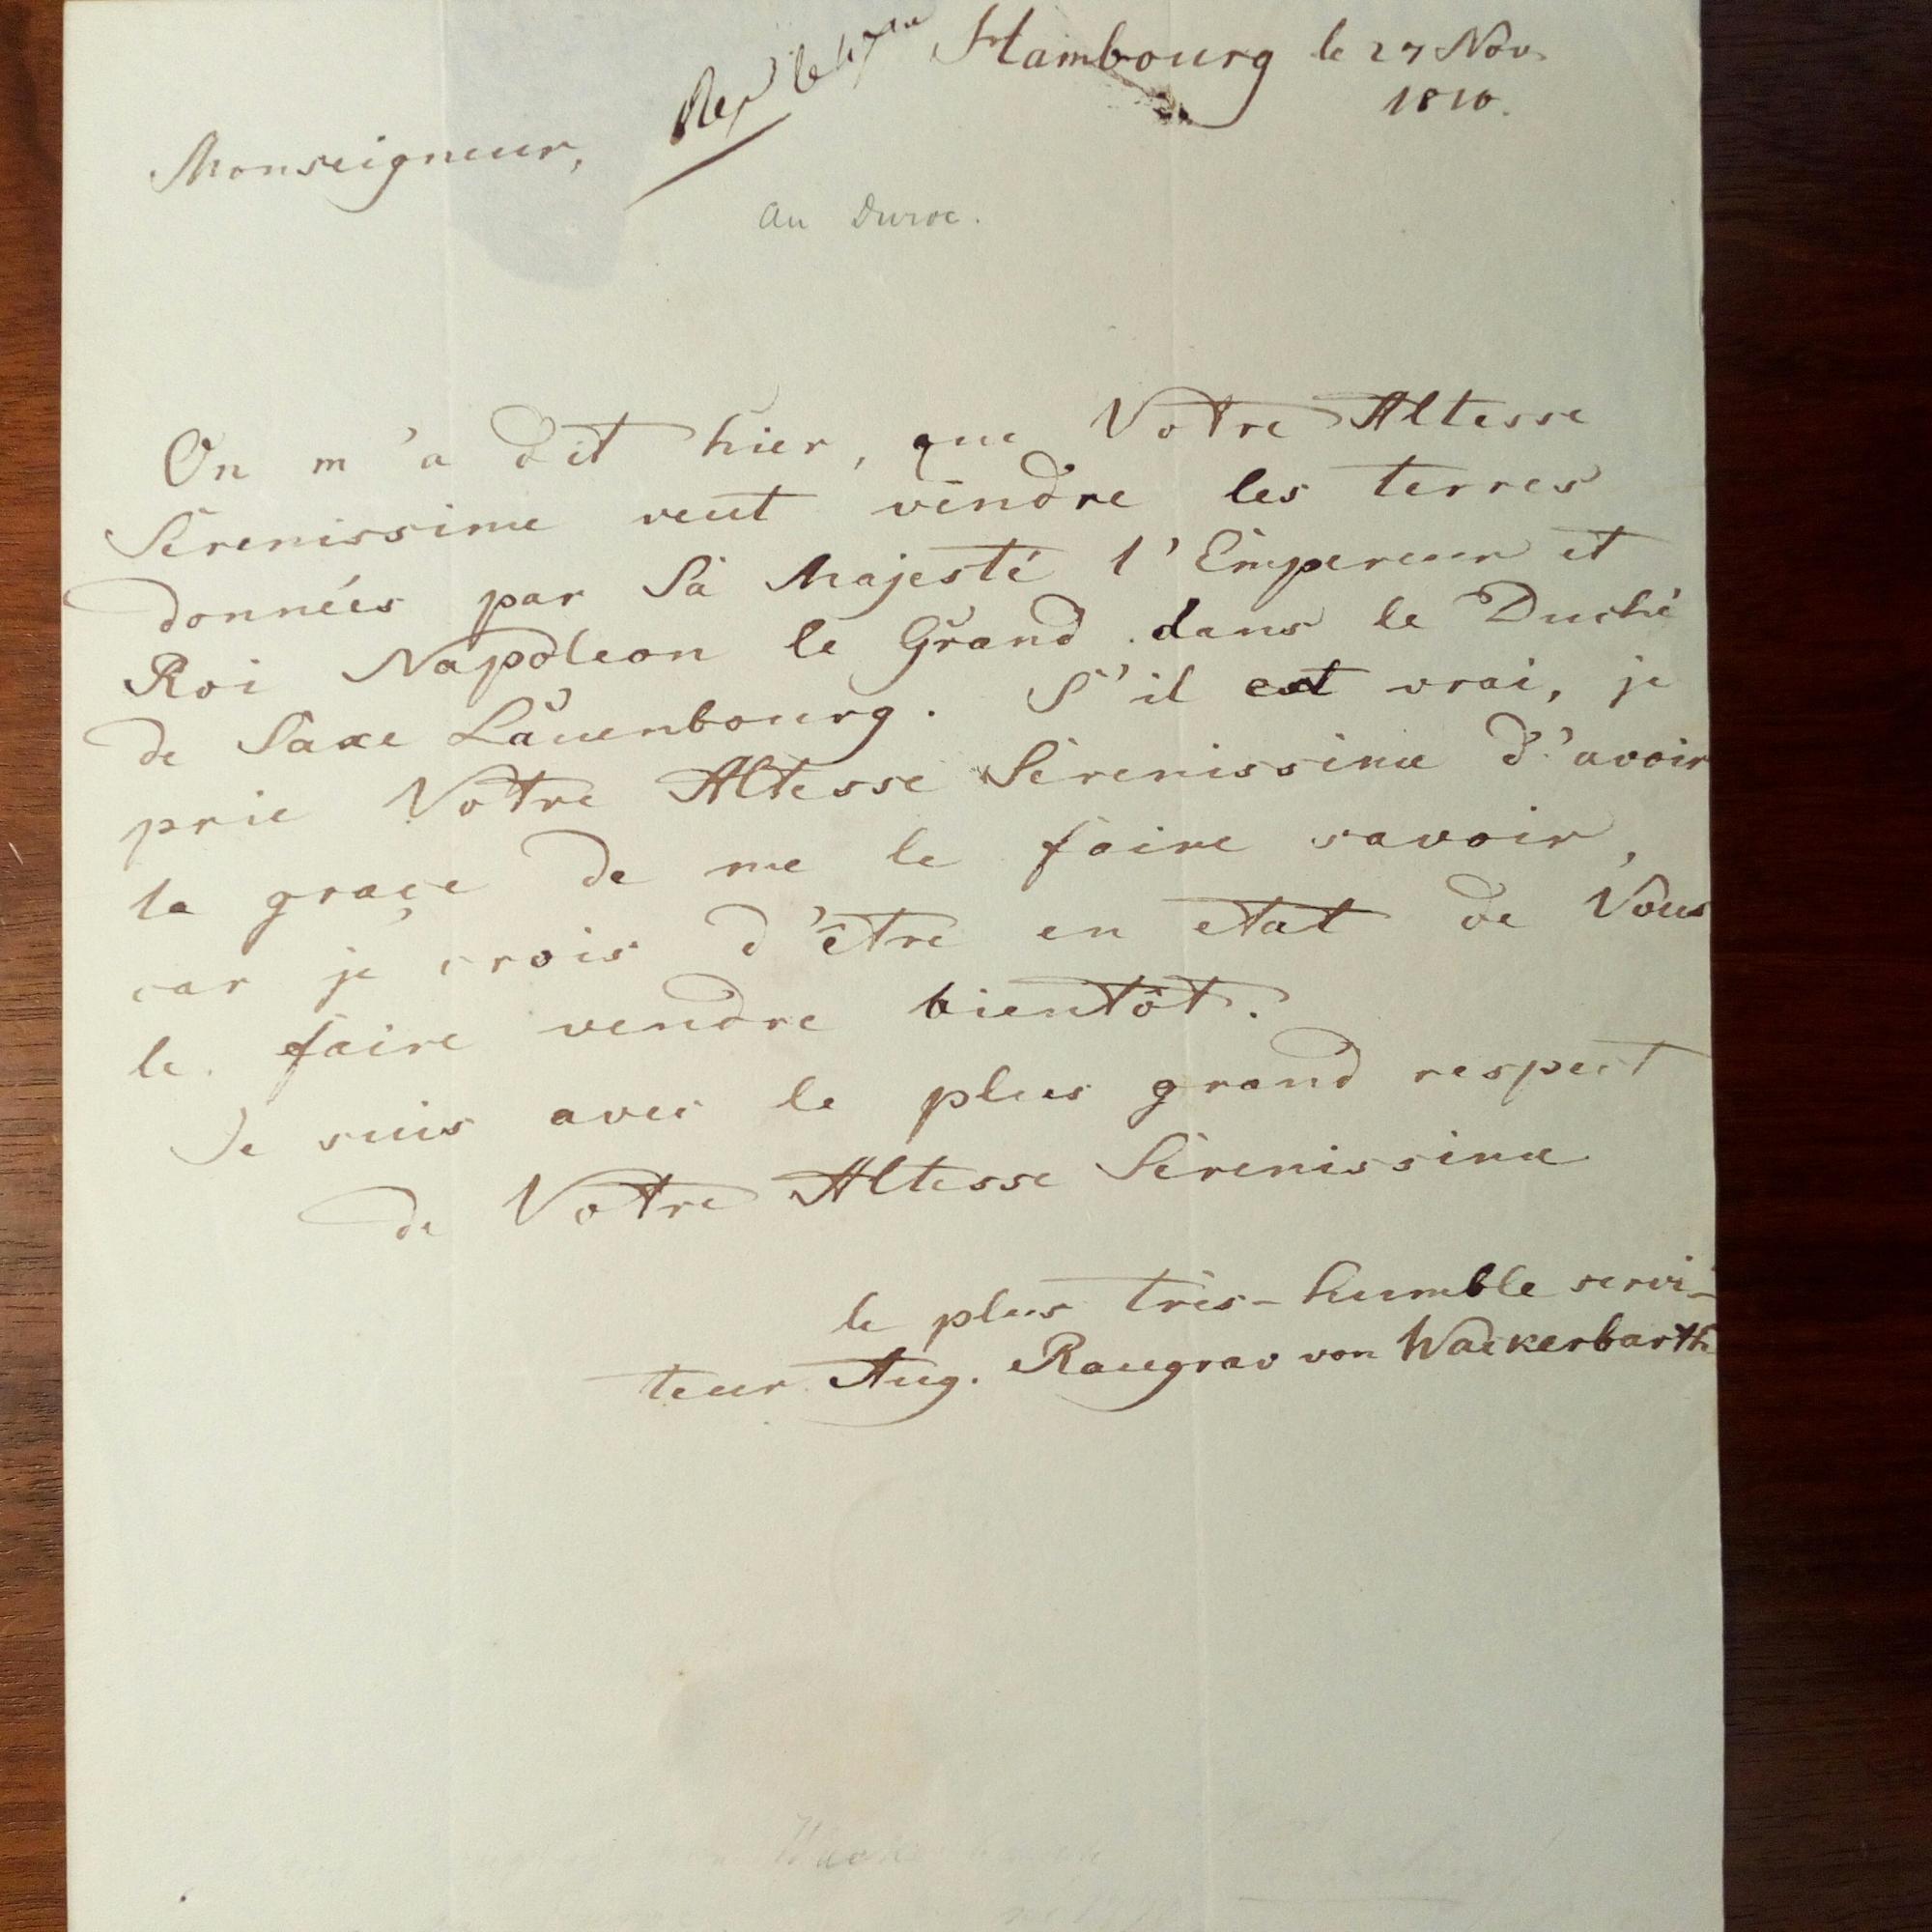 Hambourg le 27 Nov.
1810.
Monseigneur,
Rep le
au Duroc.
On m'a dit hier, que Votre Altesse
Sérenissime veut vendre les terres
données par Sa Majesté l'Empereur et
Roi Napoleon le Grand dans le Duché
de Saxe Lauenbourg. S'il est vrai, je
prie Votre Altesse Sérenissime d'avoir
la graçe de me le faire savoir,
car je crois d'être en etat de Vous
le faire vendre bientôt.
Je suis avec le plus grand respect
de Votre Altesse Sérenissime
le plus très-humble servi-
teur Aug. Raugrav von Wackerbarth